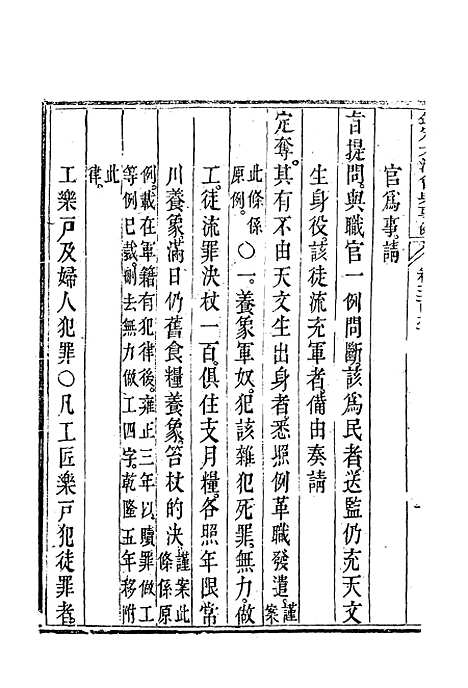 官為事。請
旨提問。與職官一例問斷。該為民者。送監仍充天文
生身役。該徒流充軍者。備由奏請
定奪。其有不由天文生出身者。悉照例革職發遣。謹案
此條係原例。〇一。養象軍奴。犯該雜犯死罪。無力做
工。徒流罪決杖一百。俱住支月糧。各照年限常
川養象。滿日仍舊食糧養象。笞杖的決。謹案此條係原
例。載在軍籍有犯律後。雍正三年以贖罪做工
等例已裁。刪去無力做工四字。乾隆五年移附
此律。
工樂戶及婦人犯罪〇凡工匠樂戶犯徒罪者。